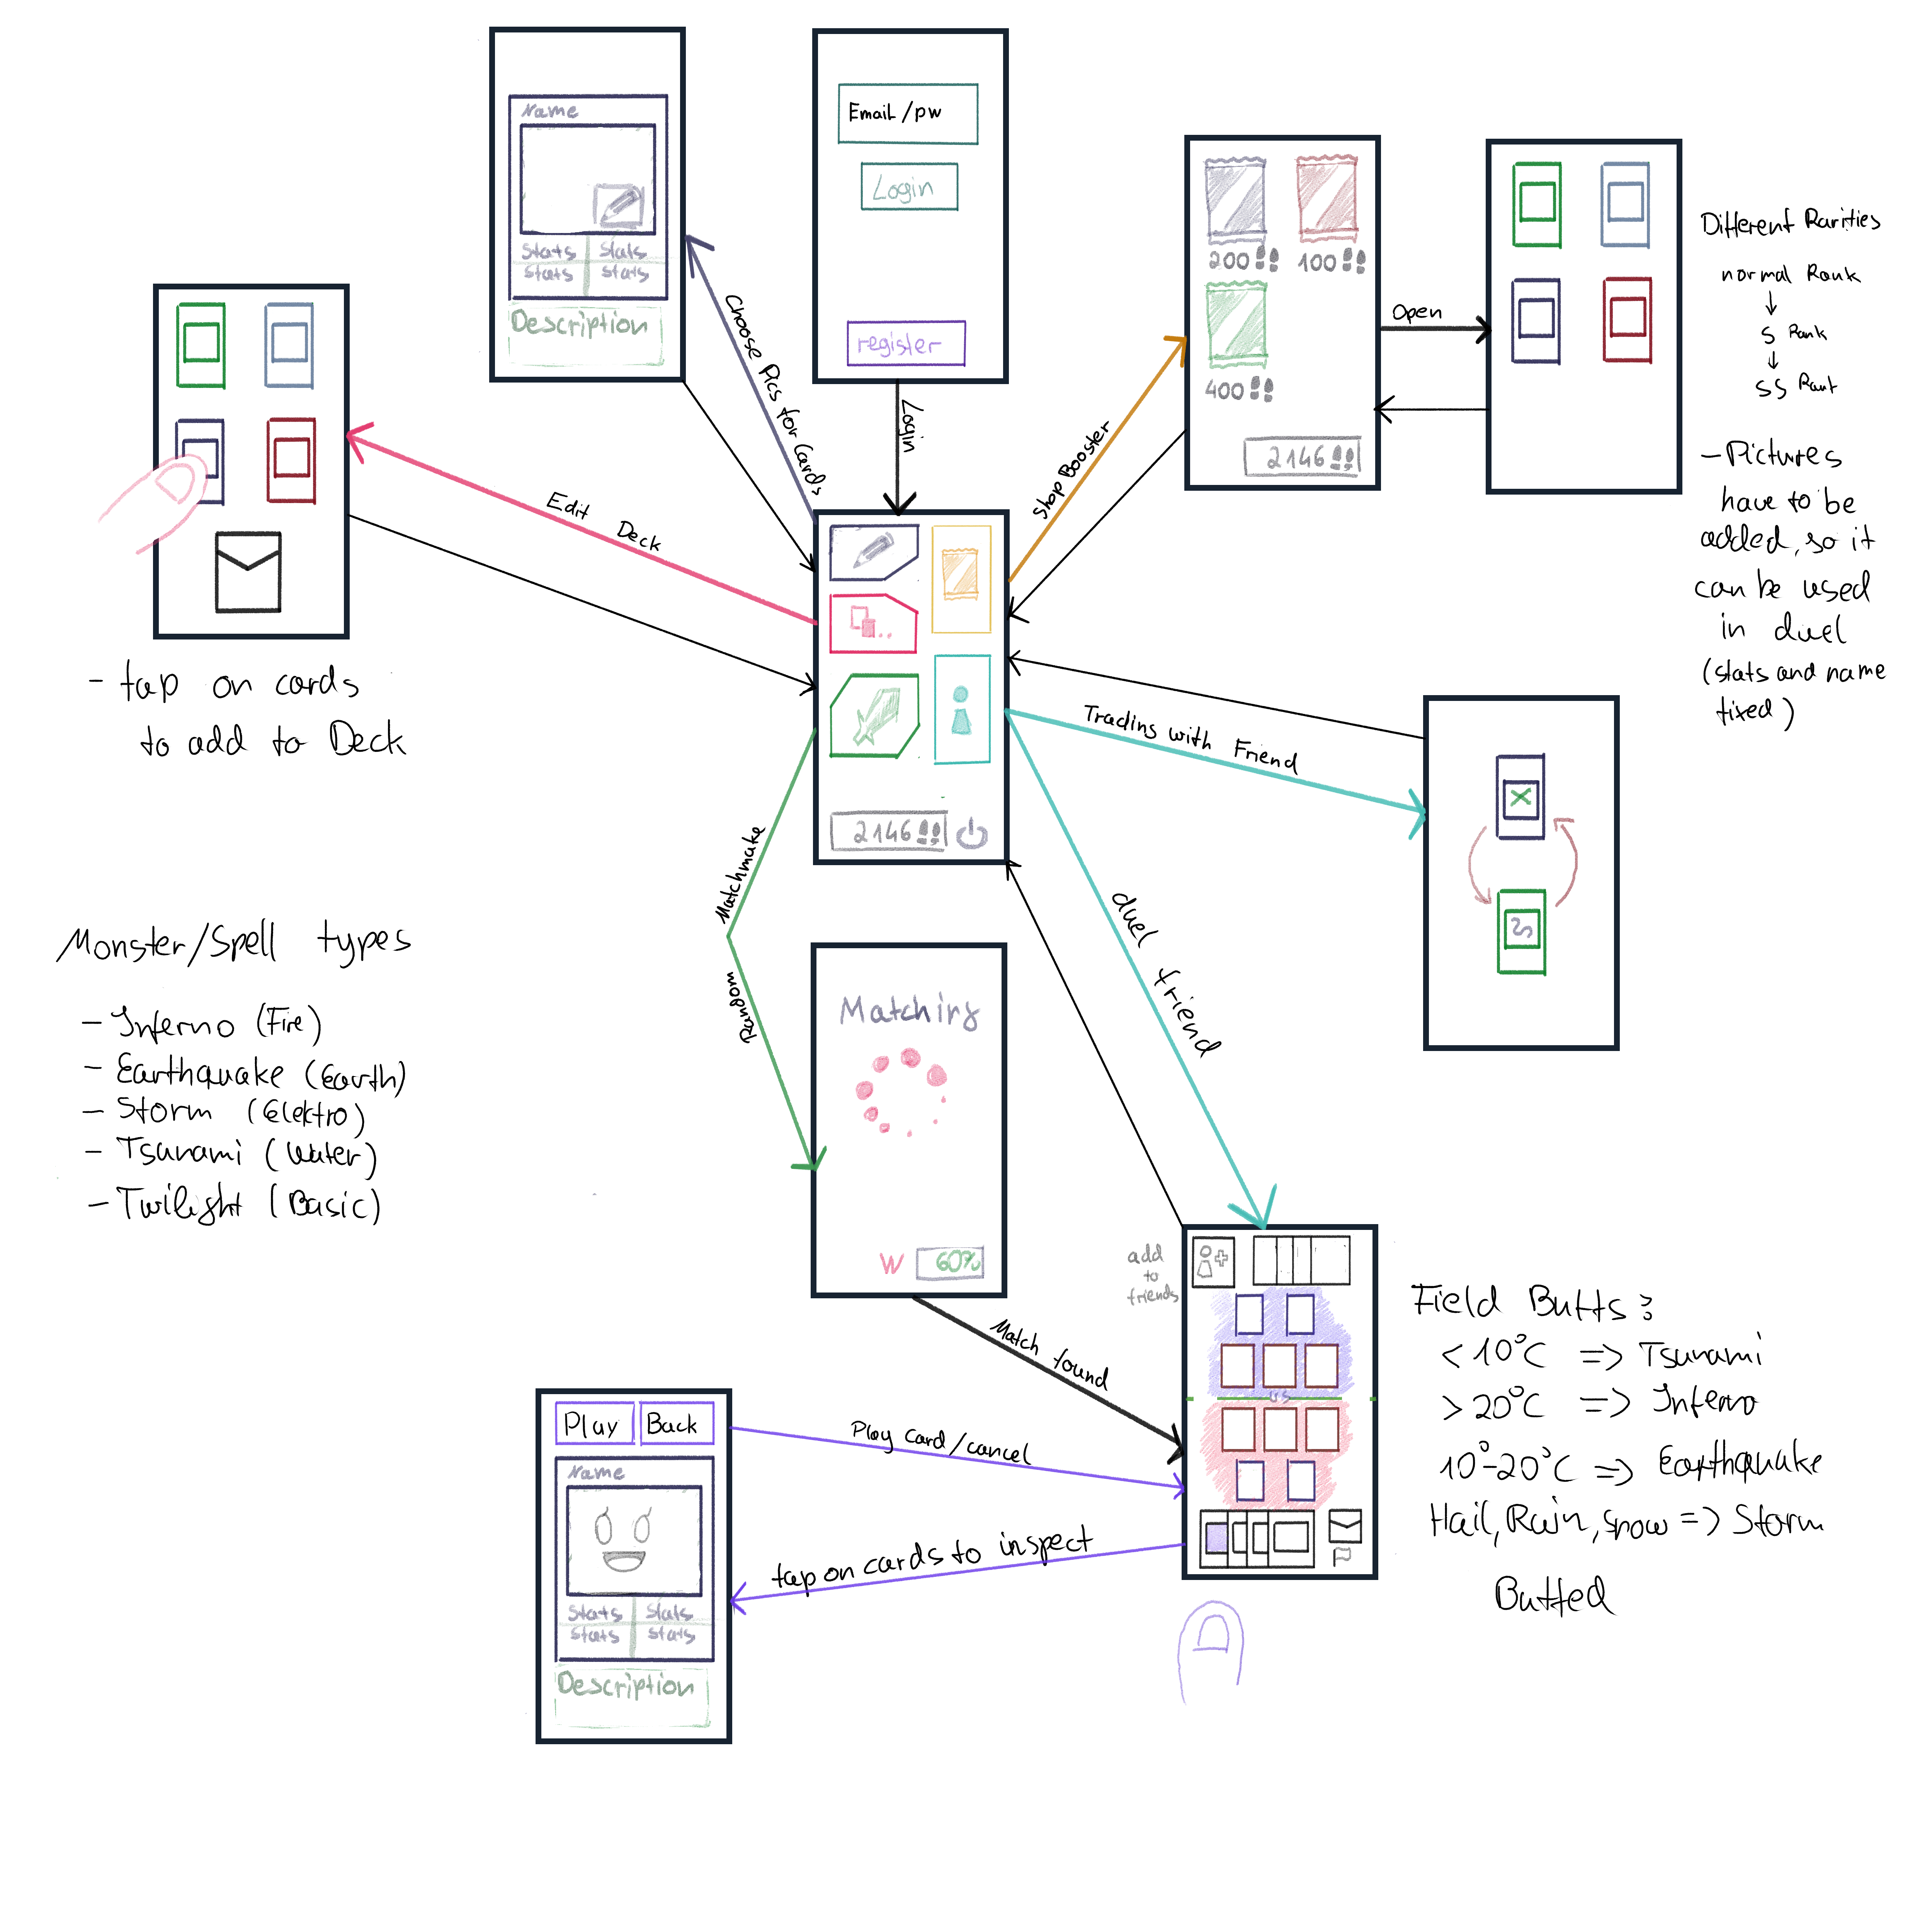 Name
Stats Stats
Stats Stats
Description
Email/pw
Login
register
200
100
400
2146
Open
Different Rarities
normal Rank
S Rank
SS Rank
- Pictures
have to be
added, so it
can be used
in duel
(stats and name
fixed)
Choose Pics for Cards
Login
Shop Booster
Edit Deck
- tap on cards
to add to Deck
2146
Trading with Friend
Matchmake
Random
duel friend
Monster/Spell types
- Inferno (Fire)
- Earthquake (Earth)
- Storm (Elektro)
- Tsunami (Water)
- Twilight (Basic)
Matching
W 60%
Match found
add
to
friends
VS
Field Buffs:
<10°C => Tsunami
>20°C => Inferno
10°-20°C => Earthquake
Hail, Rain, snow => Storm
Buffed
Play Back
Name
Stats Stats
Stats Stats
Description
Play Card/cancel
tap on cards to inspect